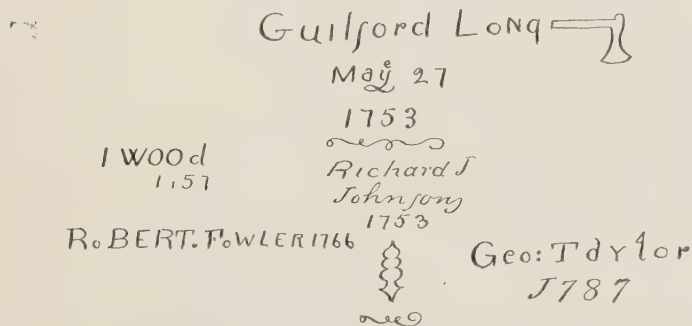 Guilford Long
May 27
1753
I Wood
1157
Richard J
Johnsons
1753
RoBERT. FoWLER 1766
Geo: Taylor
J787